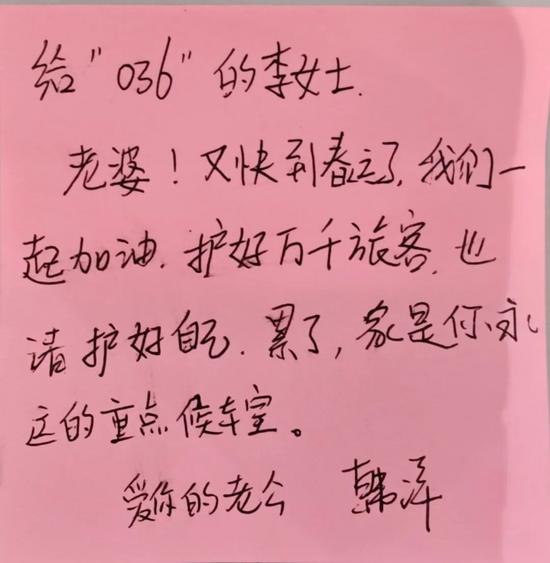 给"036"的李女士.
老婆!又快到春运了,我们一
起加油.护好万千旅客.也
请护好自己.累了,家是你永
远的重点候车室。
爱你的老公 韩泽